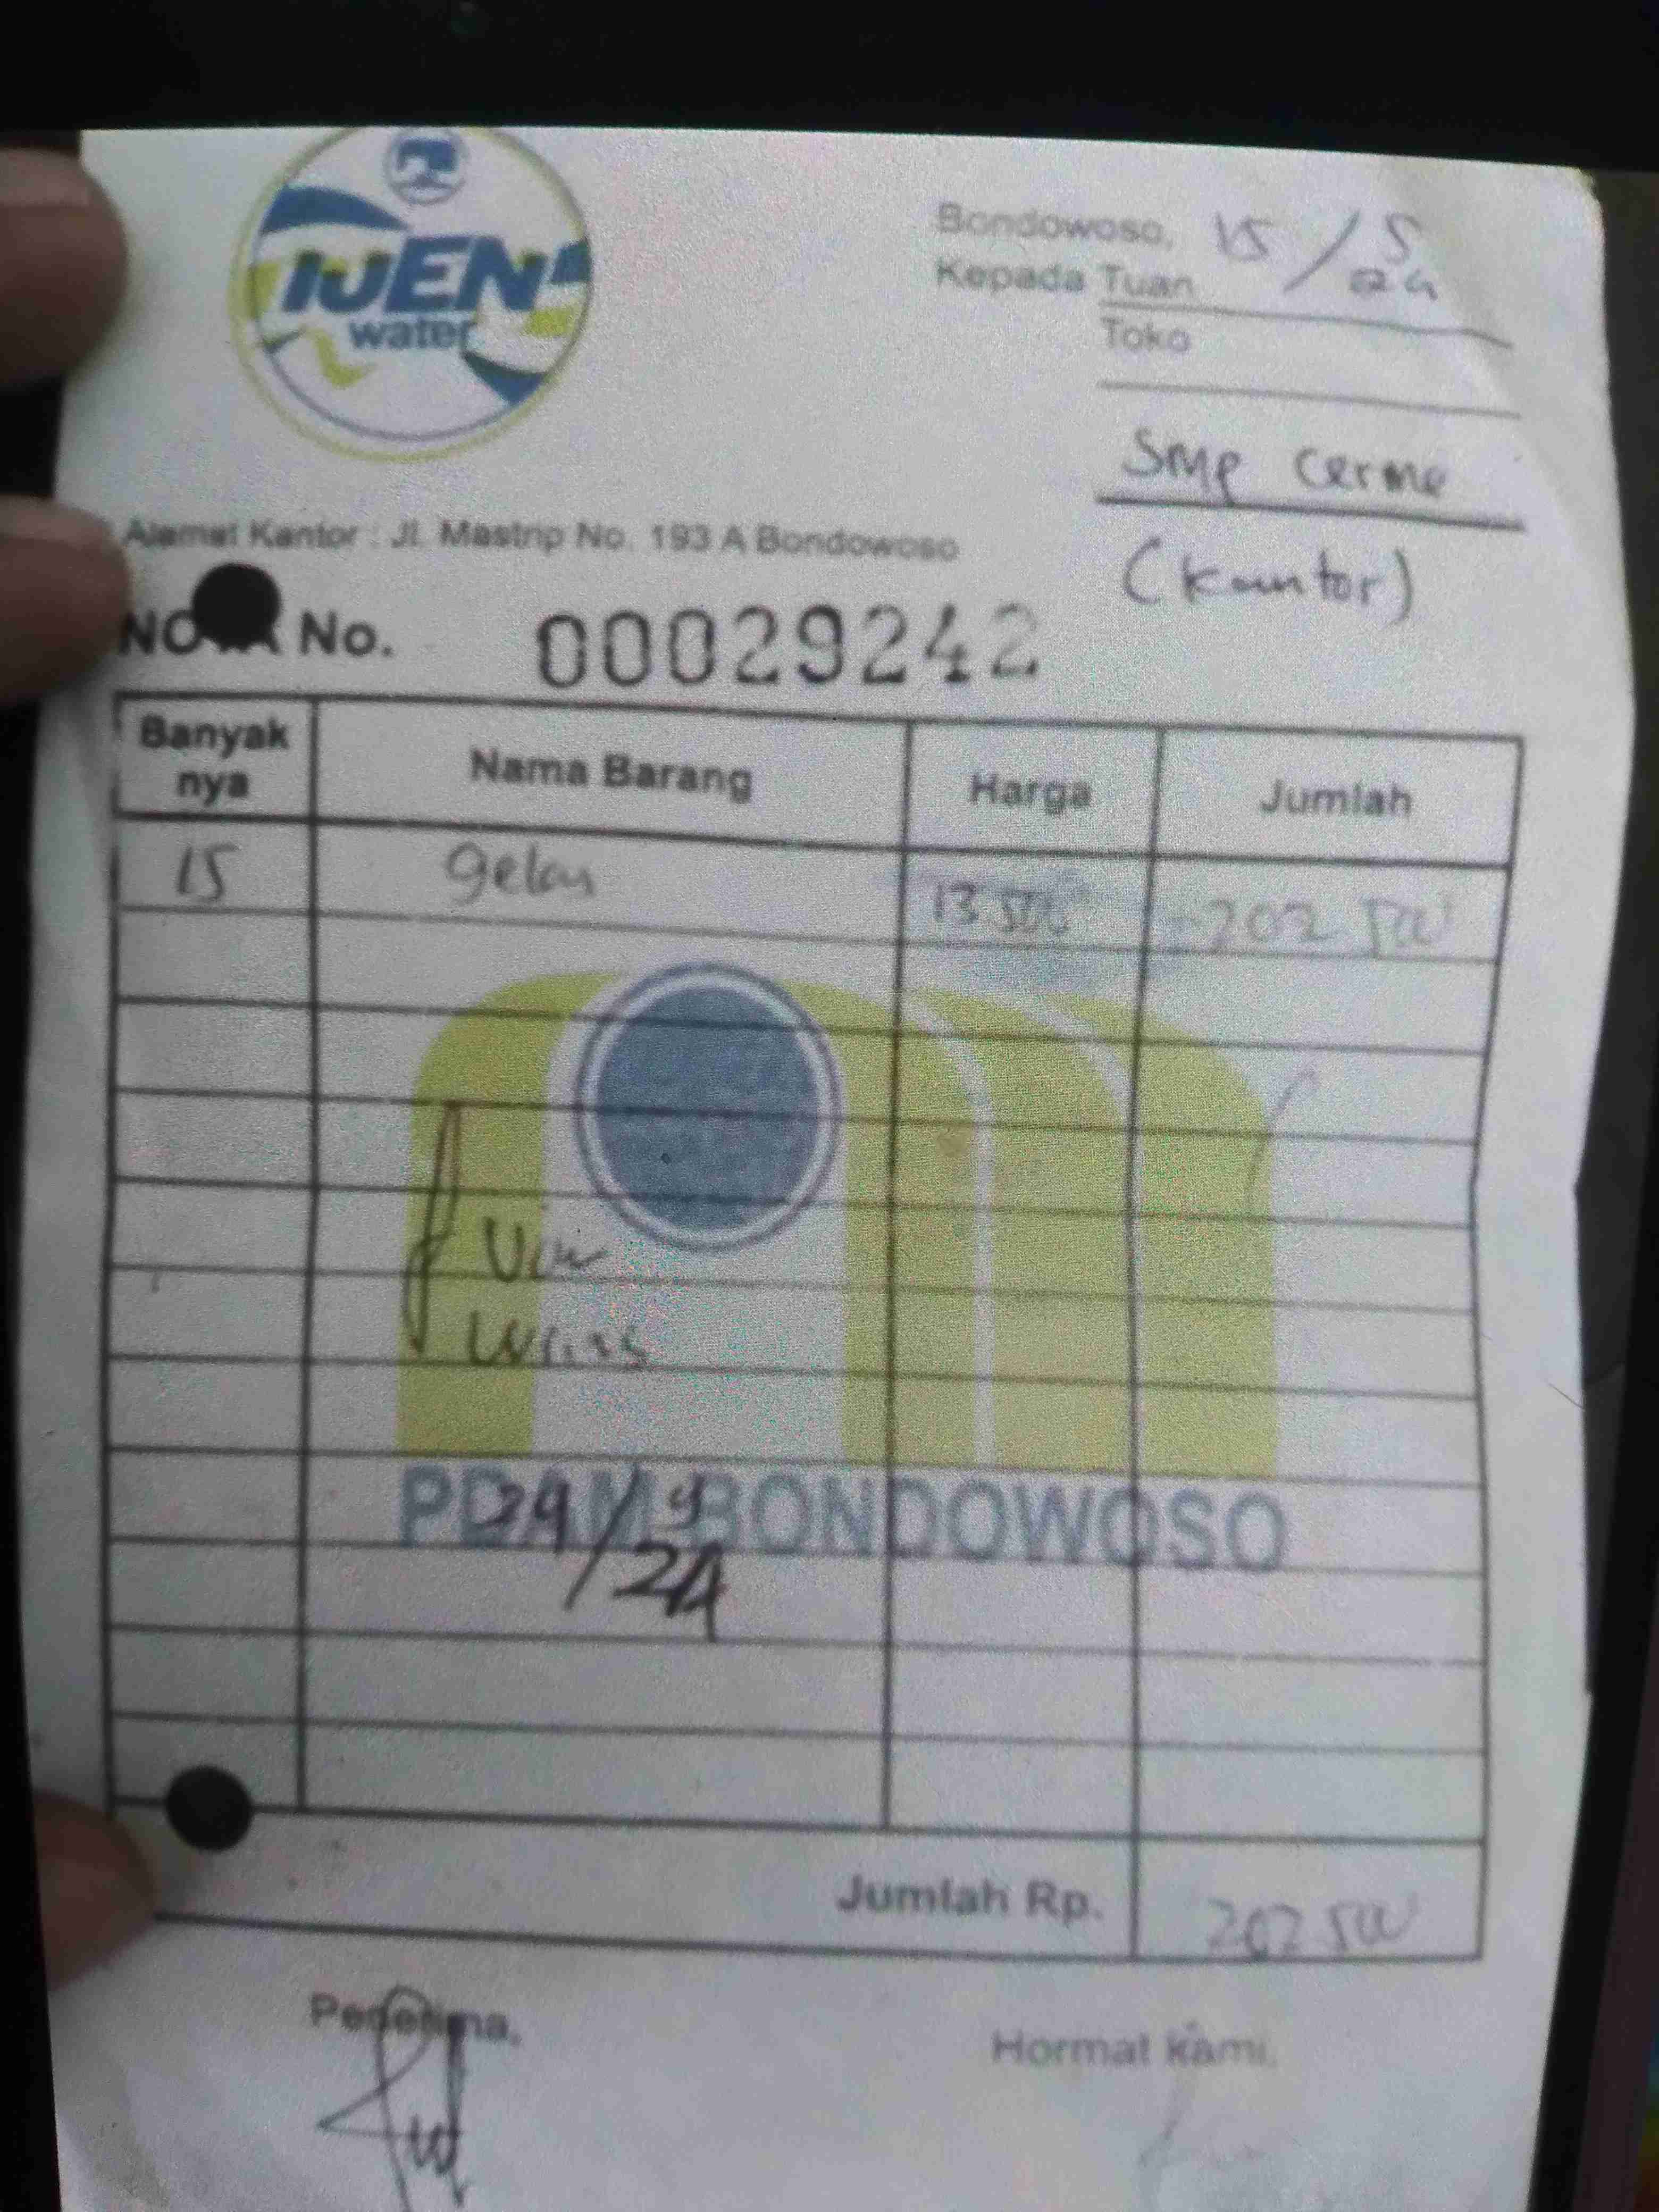 IJEN
water
Bondowoso, 15 / 5 24
Kepada Tuan
Toko
SMP Cerme
(kantor)
Alamat Kantor : Jl. Mastrip No. 193 A Bondowoso
No. 00029242
Banyak nya Nama Barang Harga Jumlah
15 gelas 13 500 202 500
PDAM BONDOWOSO
29 / 9 24
Jumlah Rp. 202 500
Penerima, Hormat kami,